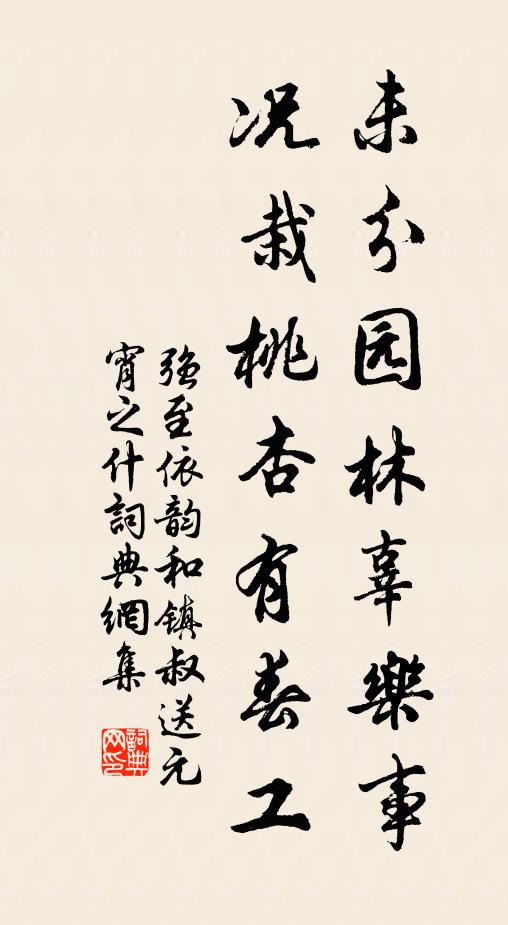 未分园林辜樂事
况栽桃杏有春工
强至依韵和镇叔送元
宵之什詞典網集
詞典网印